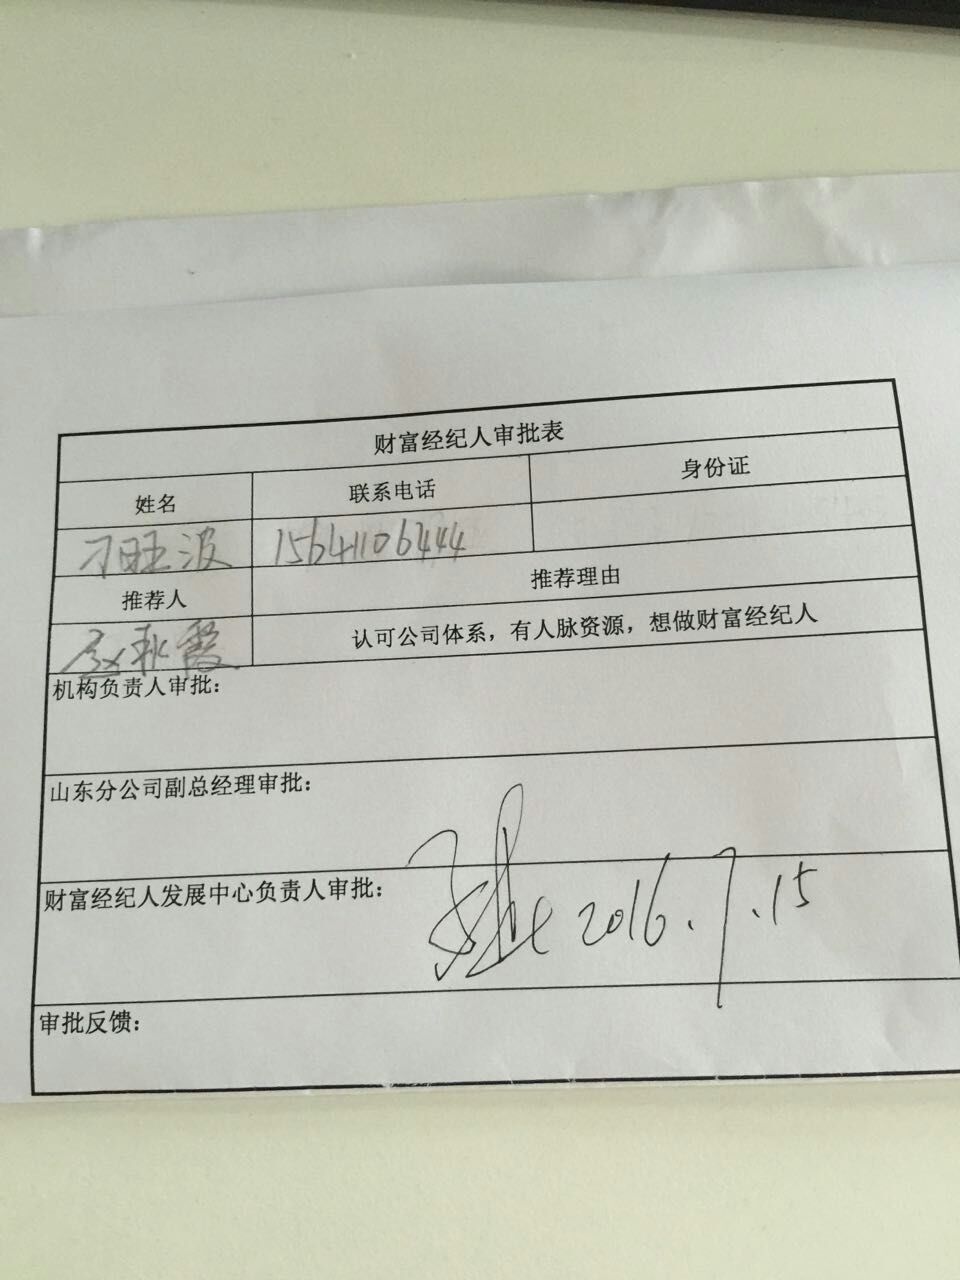 财富经纪人审批表
姓名 联系电话 身份证
刁旺波 15641106444
推荐人 推荐理由
赵秋霞 认可公司体系，有人脉资源，想做财富经纪人
机构负责人审批：
山东分公司副总经理审批：
财富经纪人发展中心负责人审批： 2016.7.15
审批反馈：